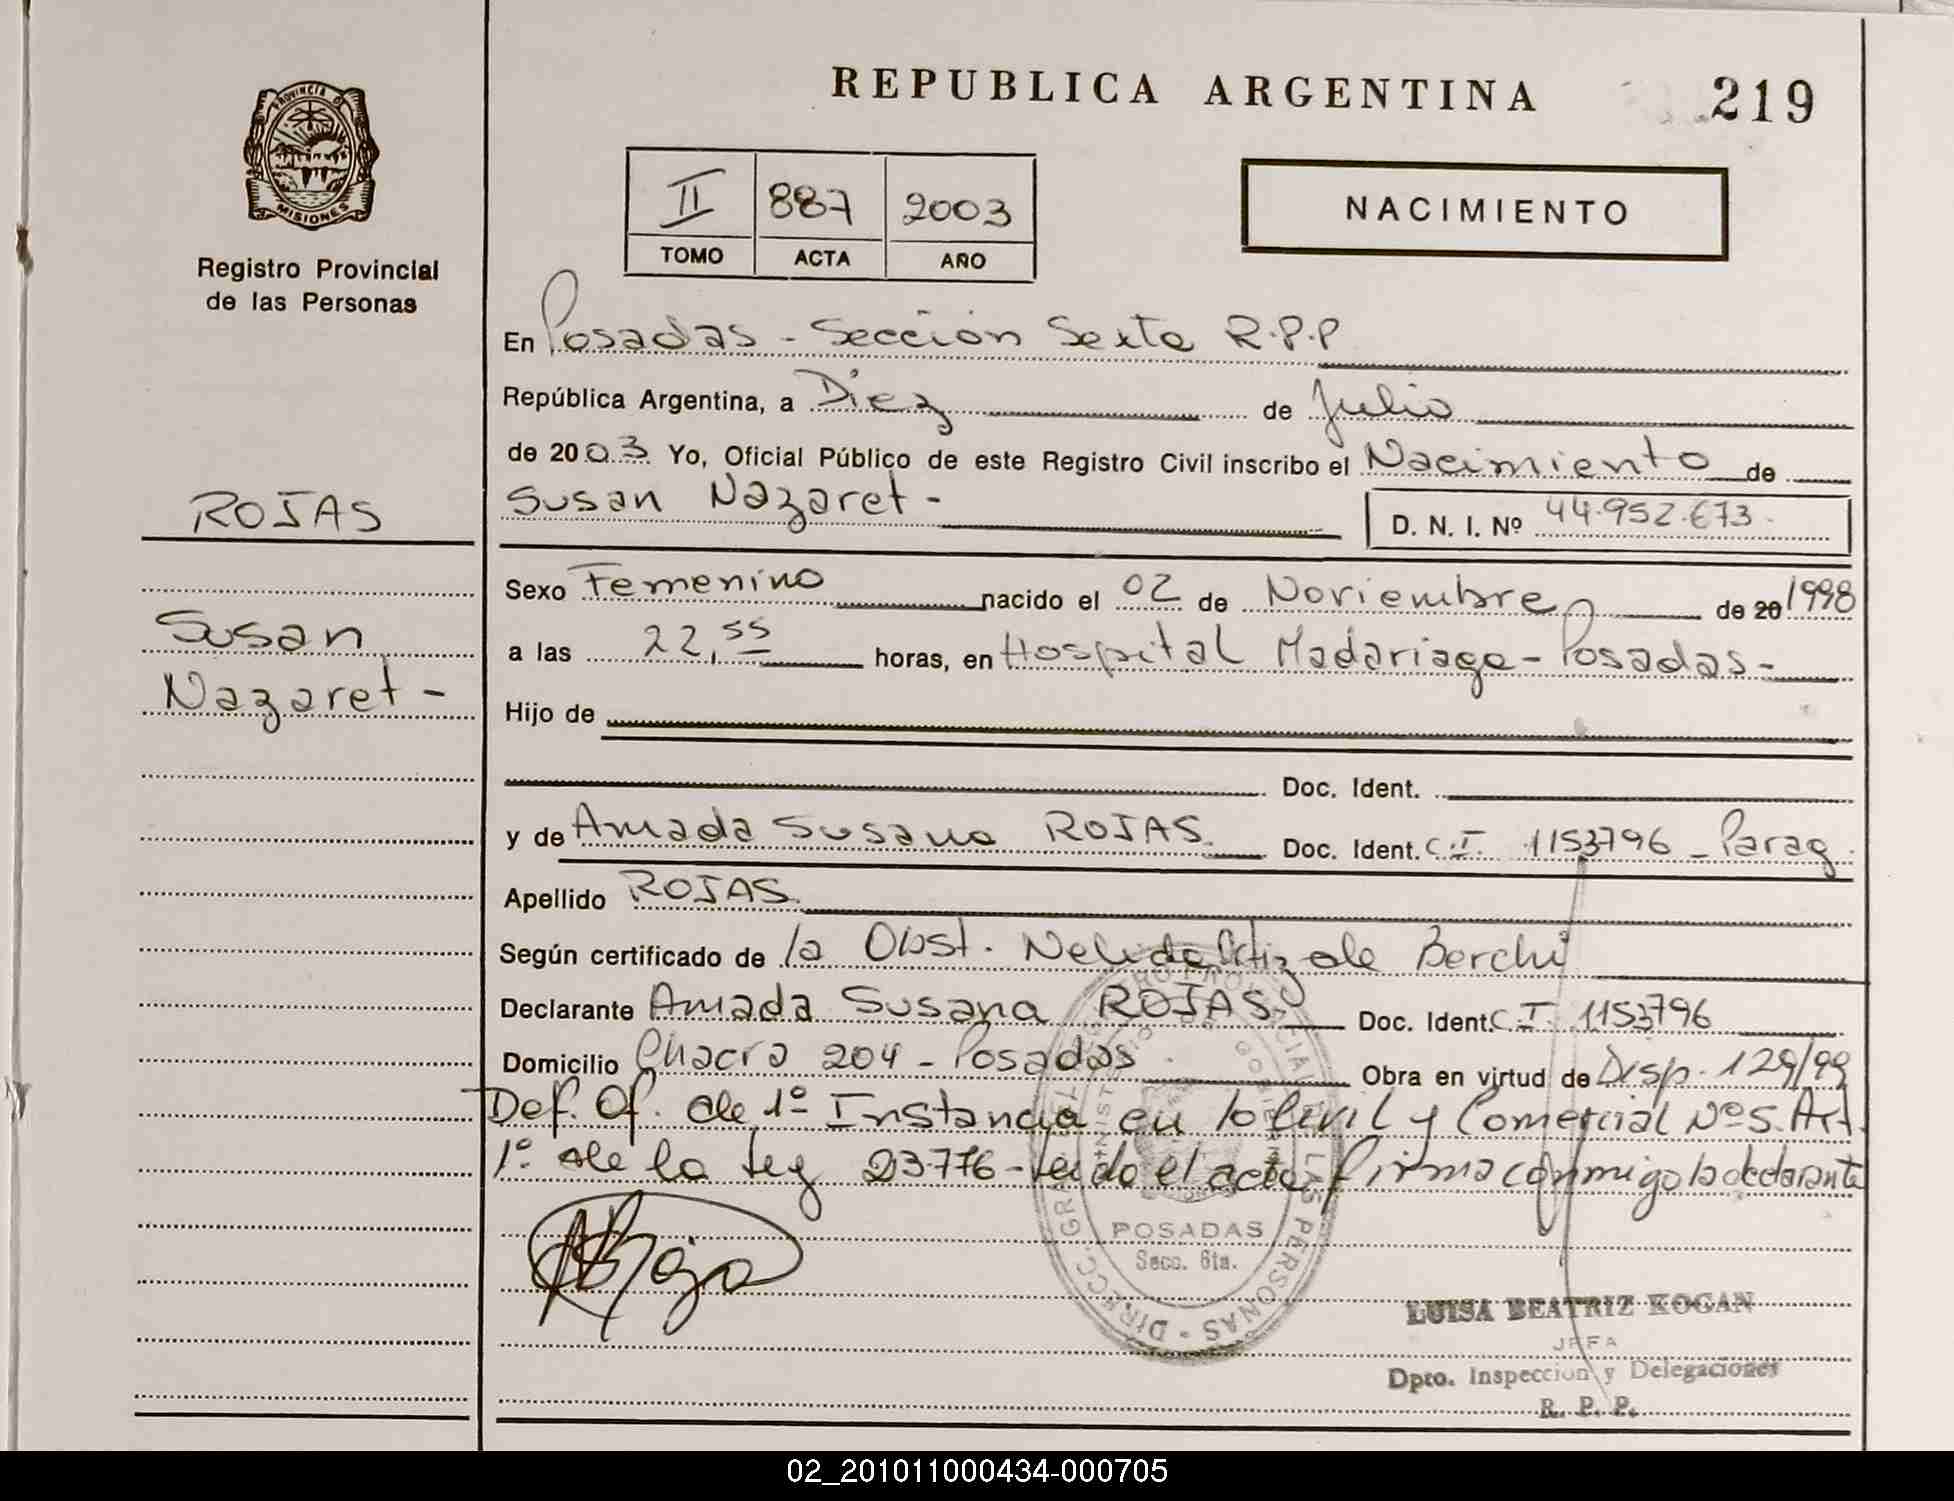 REPUBLICA ARGENTINA
219
PROVINCIA DE
MISIONES
Registro Provincial
de las Personas
II 887 2003
TOMO ACTA AÑO
NACIMIENTO
En Posadas - Sección Sexta R.P.P
República Argentina, a Diez de Julio
de 2003 Yo, Oficial Público de este Registro Civil inscribo el Nacimiento de
Susan Nazaret -
D. N. I. Nº 44.952.673.
ROJAS
Susan
Nazaret -
Sexo Femenino nacido el 02 de Noviembre de 20 1998
a las 22,55 horas, en Hospital Madariaga - Posadas -
Hijo de
Doc. Ident.
y de Amada Susana ROJAS. Doc. Ident. C.I. 1153796 - Parag.
Apellido ROJAS.
Según certificado de la Obst. Nelida de Berchi
Declarante Amada Susana ROJAS. Doc. Ident. C.I. 1153796
Domicilio Chacra 204 - Posadas. Obra en virtud de Disp. 129/99
Def. Of. de 1º Instancia en lo Civil y Comercial Nº 5. Art.
1º de la Ley 23776 - Leido el acta, firma conmigo la declarante
POSADAS
Secc. 6ta.
LUISA BEATRIZ KOGAN
JEFA
Dpto. Inspeccion y Delegaciones
R. P. P.
02_201011000434-000705